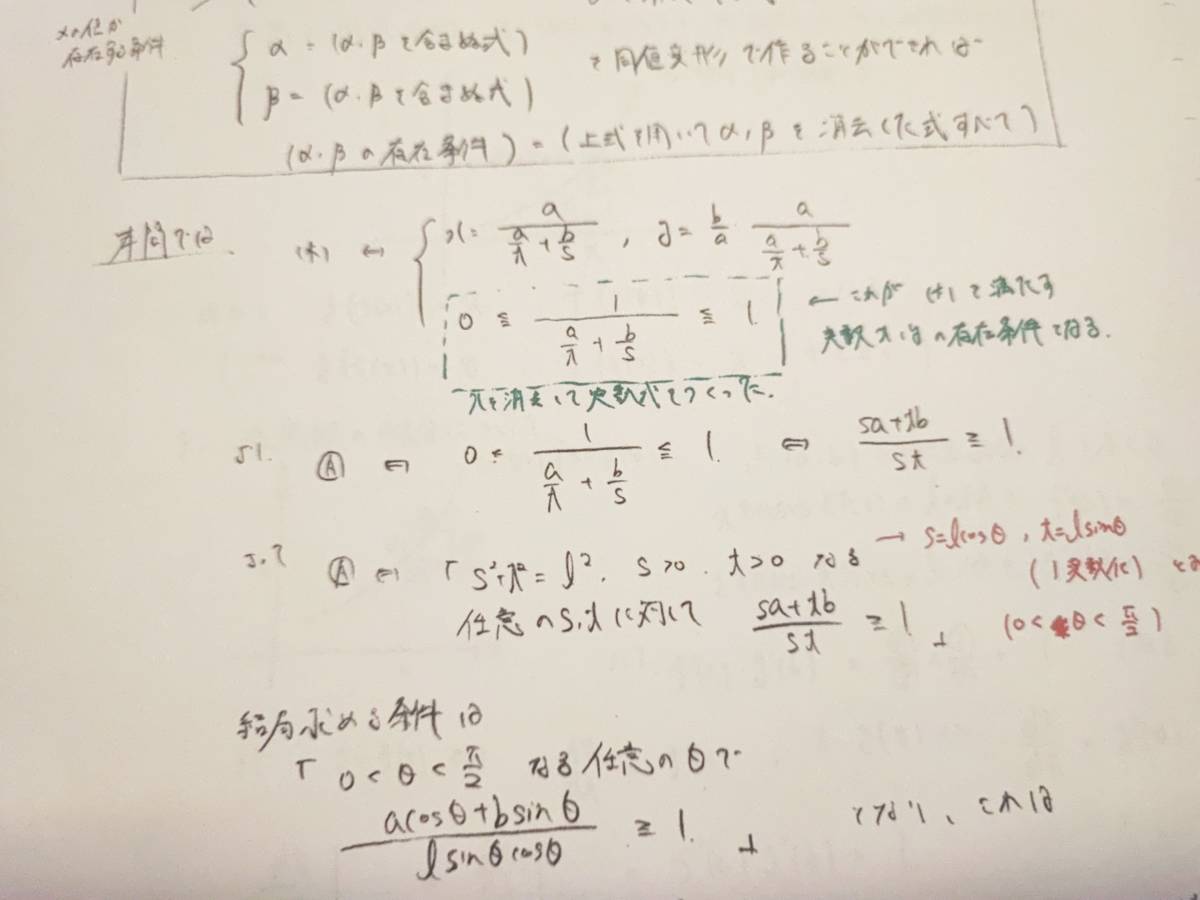 xの値が
存在する条件
α = (α・βを含まぬ式)
β = (α・βを含まぬ式)
を同値変形で作ることができれば
(α・βの存在条件) = (上式を用いてα, βを消去した式すべて)
本問では
(*) ⇔ { x = a/(a/t + b/s) , y = b/a · a/(a/t + b/s)
0 ≦ 1/(a/t + b/s) ≦ 1
← これが (*) を満たす
実数x, yの存在条件となる.
を消去して
51. Ⓐ ⇔ 0 ≦ 1/(a/t + b/s) ≦ 1 ⇔ (sa+tb)/(st) ≧ 1.
Ⓐ ⇔ 「 s²+t² = l², s>0, t>0 なる
任意のs, tに対して (sa+tb)/(st) ≧ 1 」
→ s=lcosθ , t=lsinθ
(1変数化)
(0 < θ < π/2)
結局求める条件は
「 0 < θ < π/2 なる任意のθで
(acosθ+bsinθ)/(lsinθcosθ) ≧ 1. 」 となり、これは